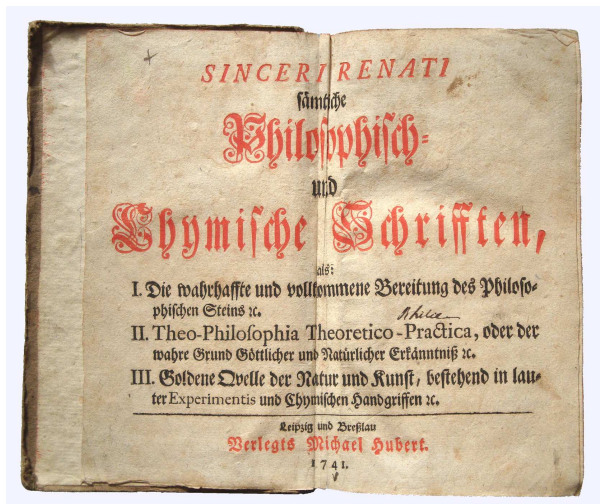 SINCERI RENATI
sämtliche
Philosophisch-
und
Chymische Schrifften,
als:
I. Die wahrhaffte und vollkommene Bereitung des Philoso-
phischen Steins ꝛc.
II. Theo-Philosophia Theoretico-Practica, oder der
wahre Grund Göttlicher und Natürlicher Erkänntniß ꝛc.
III. Goldene Qvelle der Natur und Kunst, bestehend in lau-
ter Experimentis und Chymischen Handgriffen ꝛc.
Leipzig und Breßlau
Verlegts Michael Hubert.
1741.